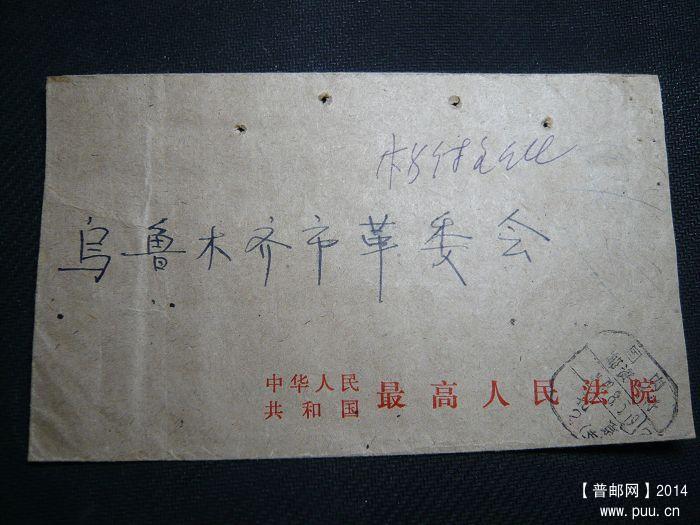 乌鲁木齐市革委会
中华人民
共和国 最高人民法院
【普邮网】2014
www.puu.cn